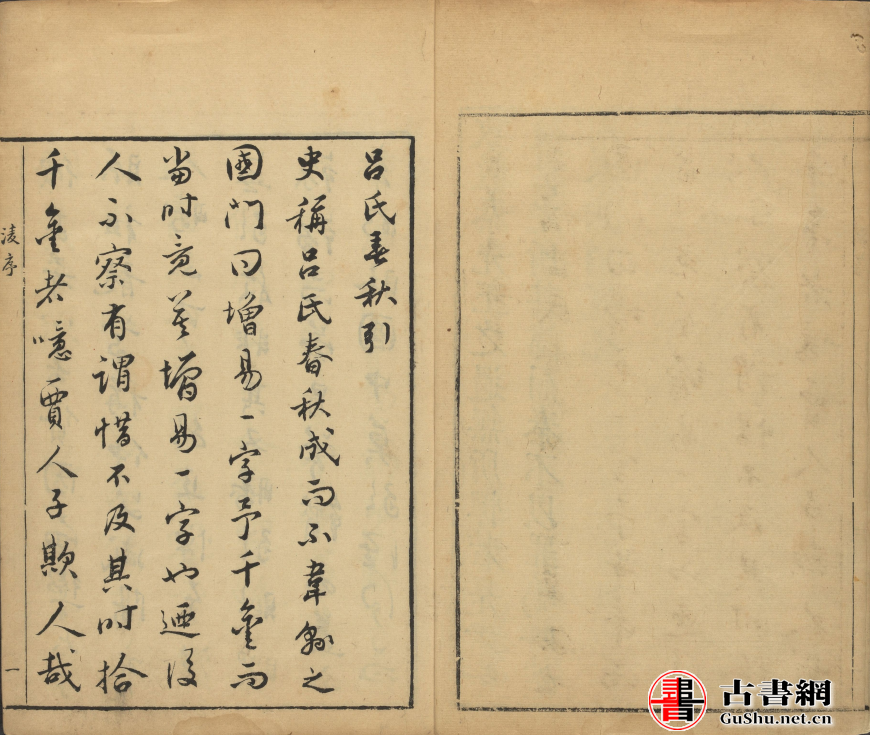 呂氏春秋引
史稱呂氏春秋成而不韋縣之
國門曰增易一字予千金而
當时竟莫增易一字也迺後
人不察有謂惜不及其时拾
千金者噫賈人子欺人哉
淩序
一
書
古書網
GuShu.net.cn